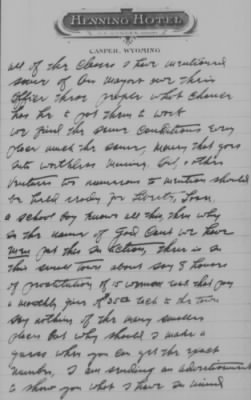 HENNING HOTEL
CASPER, WYOMING
all of this Classes I have mentioned
some of our mayors owe their
office these people what chance
has he to put them to work
we find the same Conditions Every
place much the same, money that goes
into worthless mining oil & other
ventures too numerous to mention should
be held ready for Liberty Loan,
a school boy knows all this, then why
in the name of God Cant we have
men put this in action, there is in
this small town about say 8 houses
of prostitution of 15 women each that pay
a monthly fine of each to the town
say nothing of the many smaller
places but why should I make a
guess when you can get the exact
number, I am sending an advertisement
to show you what I have in mind